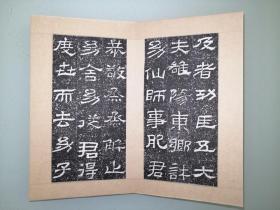 及者功臣五大
夫雒陽東鄉許
幼仙師事肥君
恭敬烝烝解止
幼舍幼從君得
度世而去幼子